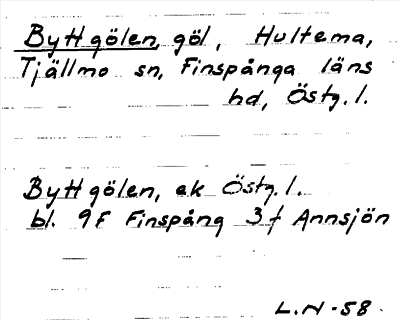 Byttgölen, göl, Hultema,
Tjällmo sn, Finspånga läns
hd, Östg. l.
Byttgölen, ek Östg. l.
bl. 9F Finspång 3f Annsjön
L.N -58.